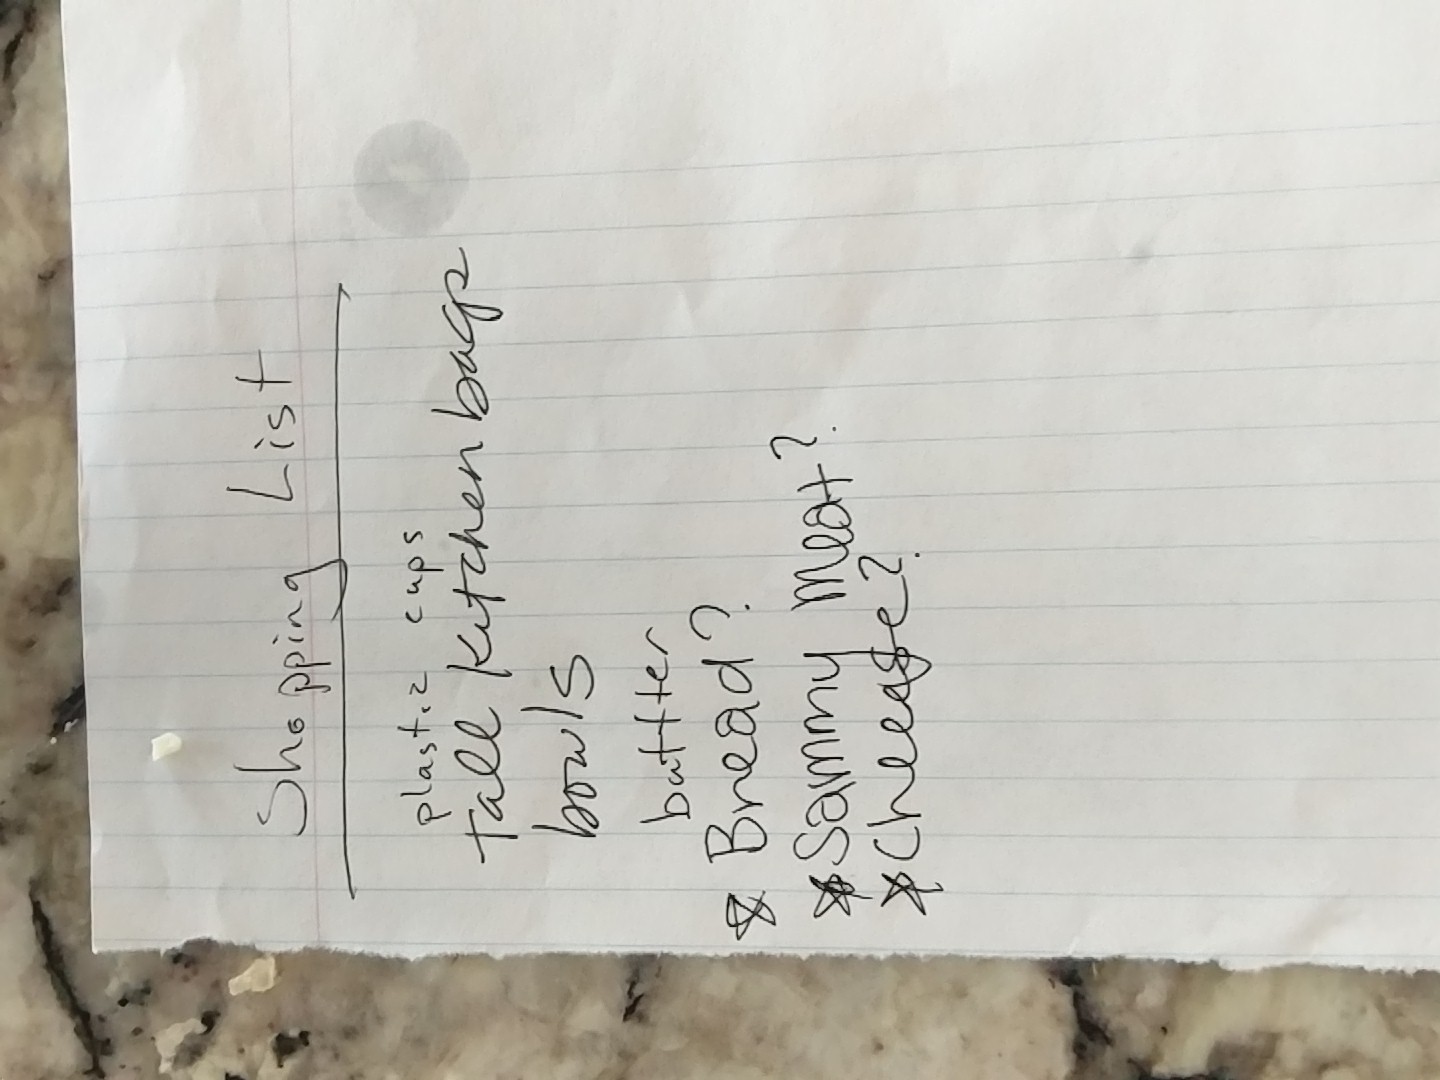 Shopping List
plastic cups
tall kitchen bags
bowls
butter
☆ Bread?
☆ Sammy meat?
☆ Cheese?